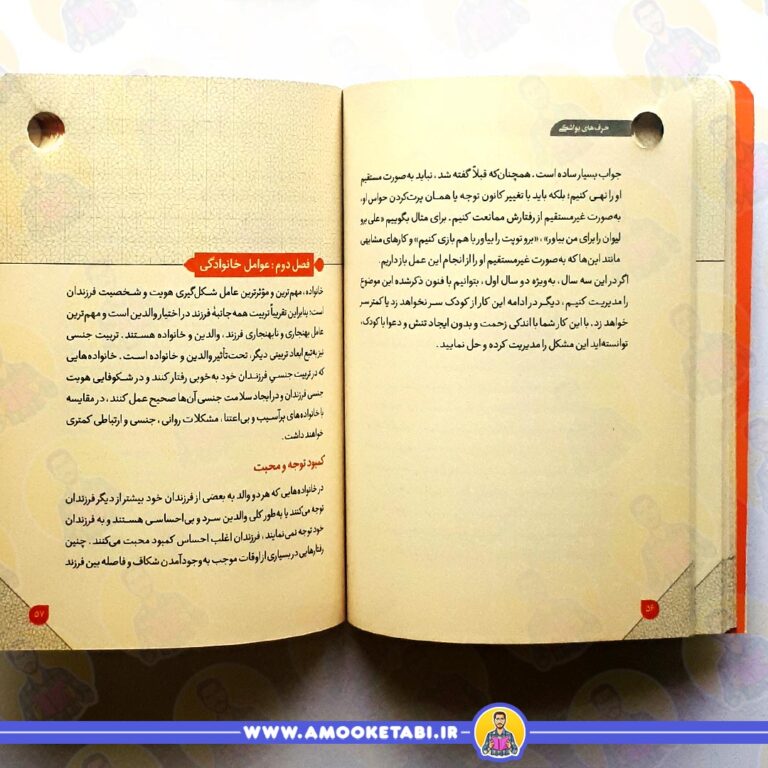 حرف‌های یواشکی
جواب بسیار ساده است. همچنان‌که قبلاً گفته شد، نباید به‌صورت مستقیم
او را نهی کنیم؛ بلکه باید با تغییر کانون توجه یا همان پرت‌کردن حواس او،
به‌صورت غیرمستقیم از رفتارش ممانعت کنیم. برای مثال بگوییم «علی برو
لیوان را برای من بیاور»، «برو توپت را بیاور با هم بازی کنیم» و کارهای مشابهی
مانند این‌ها که به‌صورت غیرمستقیم او را از انجام این عمل باز داریم.
اگر در این سه سال، به‌ویژه دو سال اول، بتوانیم با فنون ذکرشده این موضوع
را مدیریت کنیم، دیگر در ادامه این کار از کودک سر نخواهد زد یا کمتر سر
خواهد زد. با این کار شما با اندکی زحمت و بدون ایجاد تنش و دعوا با کودک،
توانسته‌اید این مشکل را مدیریت کرده و حل نمایید.
۵۶
فصل دوم: عوامل خانوادگی
خانواده، مهم‌ترین و مؤثرترین عامل شکل‌گیری هویت و شخصیت فرزندان
است؛ بنابراین تقریباً تربیت همه جانبهٔ فرزند در اختیار والدین است و مهم‌ترین
عامل بهنجاری و نابهنجاری فرزند، والدین و خانواده هستند. تربیت جنسی
نیز به‌تبع ابعاد تربیتی دیگر، تحت‌تأثیر والدین و خانواده است. خانواده‌هایی
که در تربیت جنسی فرزندان خود به‌خوبی رفتار کنند و در شکوفایی هویت
جنسی فرزندان و در ایجاد سلامت جنسی آن‌ها صحیح عمل کنند، در مقایسه
با خانواده‌های پرآسیب و بی‌اعتنا، مشکلات روانی، جنسی و ارتباطی کمتری
خواهند داشت.
کمبود توجه و محبت
در خانواده‌هایی که هر دو والد به بعضی از فرزندان خود بیشتر از دیگر فرزندان
توجه می‌کنند یا به‌طور کلی والدین سرد و بی‌احساسی هستند و به فرزندان
خود توجه نمی‌نمایند، فرزندان اغلب احساس کمبود محبت می‌کنند. چنین
رفتارهایی در بسیاری از اوقات موجب به وجود آمدن شکاف و فاصله بین فرزند
۵۷
WWW.AMOOKETABI.IR